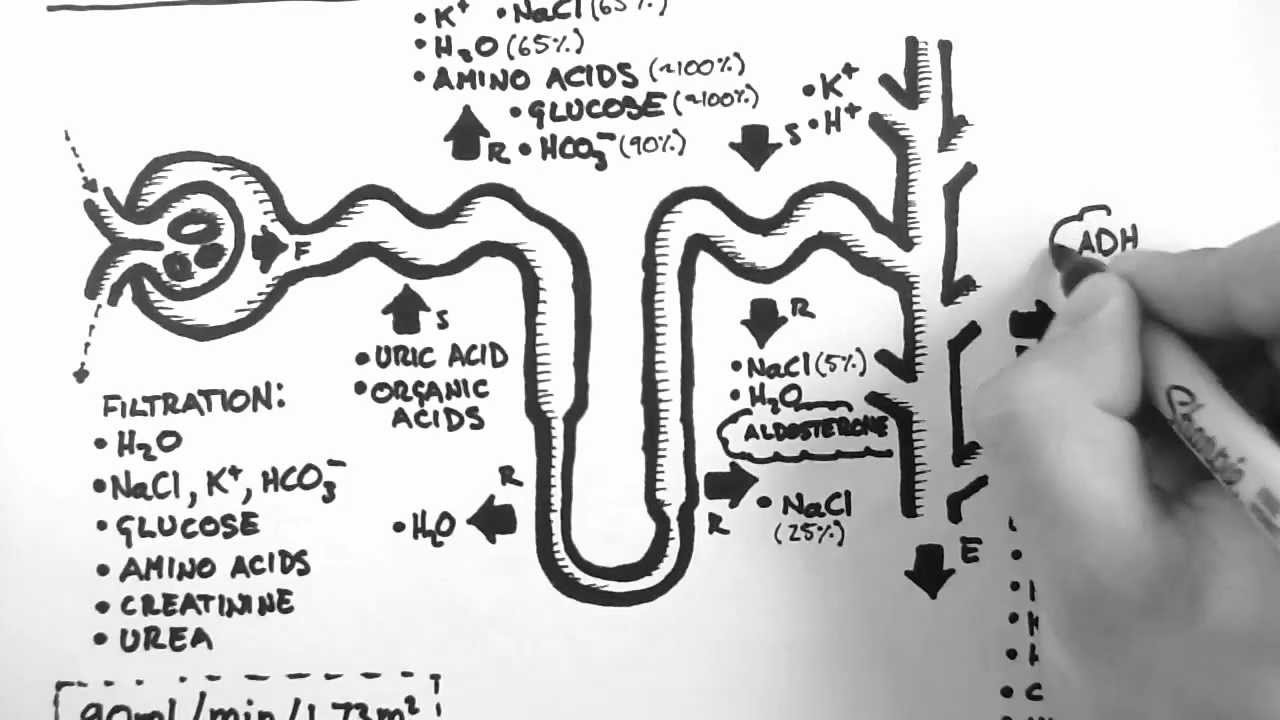 • K⁺ • NaCl (65%)
• H₂O (65%)
• AMINO ACIDS (~100%)
• GLUCOSE (~100%)
R • HCO₃⁻ (90%)
S • K⁺
• H⁺
F
ADH
S
• URIC ACID
• ORGANIC
ACIDS
R
• NaCl (5%)
• H₂O
ALDOSTERONE
FILTRATION:
• H₂O
• NaCl, K⁺, HCO₃⁻
• GLUCOSE
• AMINO ACIDS
• CREATININE
• UREA
R
• H₂O
R
• NaCl
(25%)
E
90ml/min/1.73m²